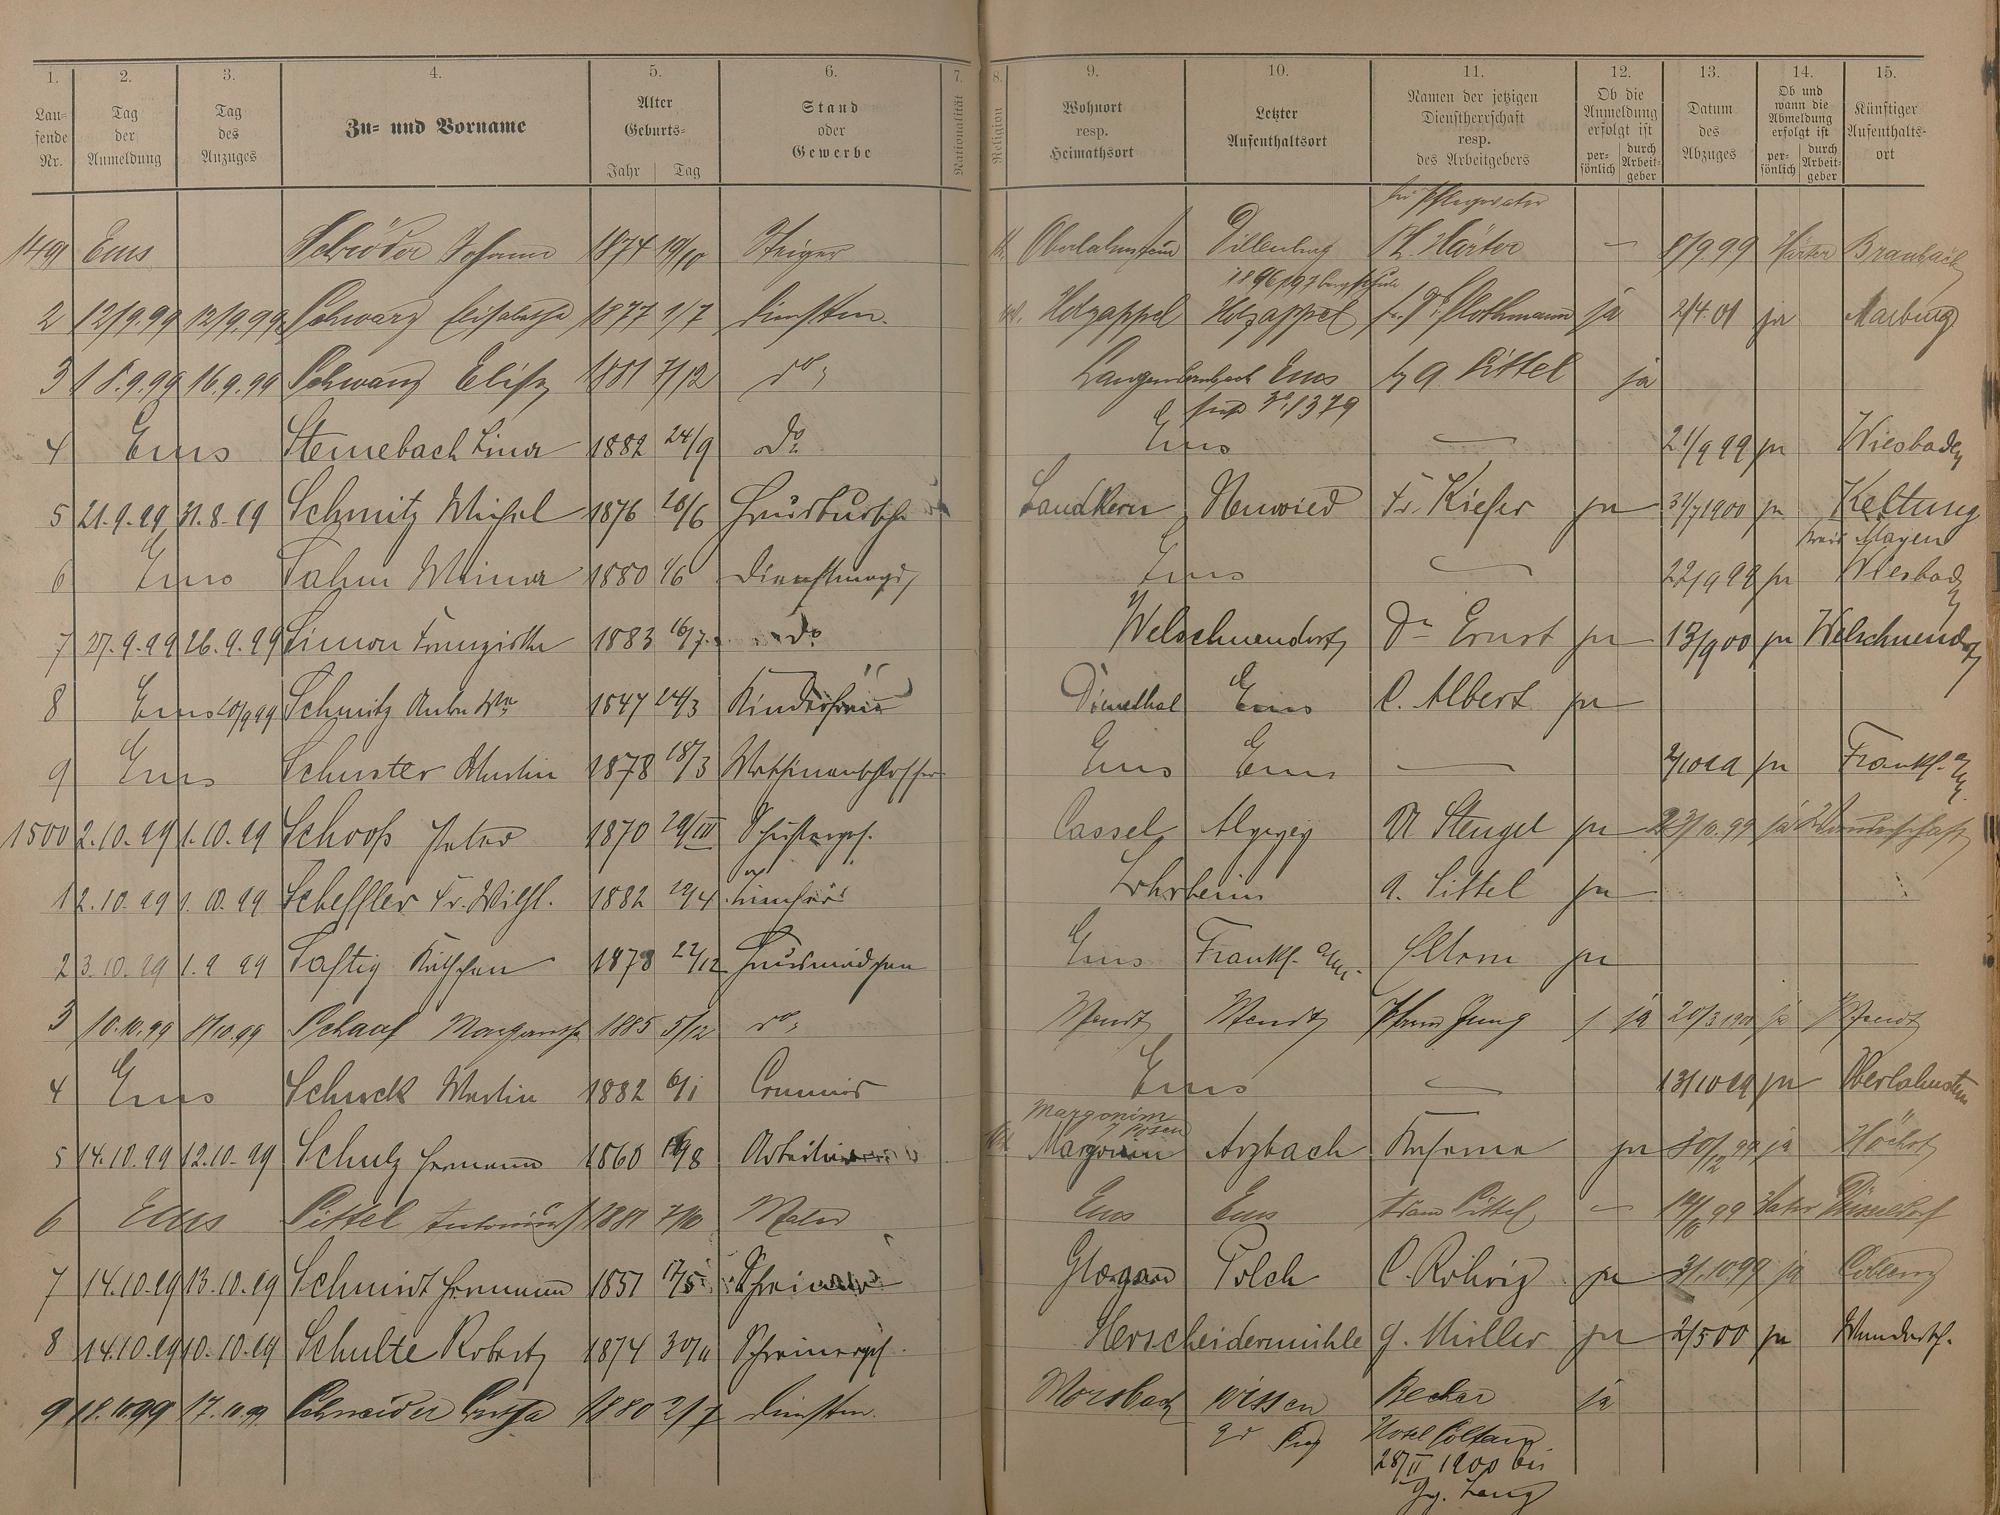 1. 2. 3. 4. 5. 6. 7. 8. 9. 10. 11. 12. 13. 14. 15.
Lau-
fende
Nr.
Tag
der
Anmeldung
Tag
des
Anzuges
Zu- und Vorname
Alter
Geburts-
Jahr Tag
Stand
oder
Gewerbe
Nationalität
Religion
Wohnort
resp.
Heimathsort
Letzter
Aufenthaltsort
Namen der jetzigen
Dienstherrschaft
resp.
des Arbeitgebers
Ob die
Anmeldung
erfolgt ist
per-
sönlich
durch
Arbeit-
geber
Datum
des
Abzuges
Ob und
wann die
Abmeldung
erfolgt ist
per-
sönlich
durch
Arbeit-
geber
Künftiger
Aufenthalts-
ort
1491 Ems Schröder Johann 1874 19/10 Steiger Oberlahnstein Dillenburg Härter — 8/9.99 Härter Braubach
2 12/9.99 12/9.99 Schwarz Elisabetha 1877 1/7 Dienstm. Holzappel Holzappel Flothmann ja 2/4.01 ja Marburg
3 18.9.99 16.9.99 Schwarz Elise 1881 7/12 do Ems A. Sittel ja
No. 1379
4 Ems Stemebach Lina 1882 24/9 do. Ems — 21/9 99 ja Wiesbaden
5 21.9.99 31.8.99 Schmitz Michel 1876 28/6 Hausbursche Landkern Neuwied Fr. Kiefer ja 31/7 1900 ja Kettung
Kreis Mayen
6 Ems Sahm Mina 1880 1/6 Dienstmagd Ems — 22/9 99 ja Wiesbad
7 27.9.99 26.9.99 Simon Franziska 1883 16/7 do Welschneudorf Dr Ernst ja 13/9 00 ja Welschneudorf
8 Ems 20/9 99 Schmitz Anton Ww 1847 24/3 Kinderfrau Dienethal Ems C. Albert ja
9 Ems Schuster Martin 1878 18/3 Maschinenschlosser Ems Ems — 2/10 99 ja Frankf. a/M.
1500 2.10.99 1.10.99 Schooß Peter 1870 29/III Schusterges. Cassel Stengel ja 23/10.99 ja Wanderschaft
1 2.10.99 1.10.99 Scheffler Fr. Wilh. 1882 22/4 Lohrheim A. Sittel ja
2 3.10.99 1.9 99 Saftig Käthchen 1878 22/12 Hausmädchen Ems Frankf. a/M. Eltern ja
3 10.10.99 8/10.99 Schaaf Margaretha 1885 5/12 do Nendt Nendt Jung / ja 20/3 1900 ja Nendt
4 Ems Schuck Martin 1882 6/1 Commis Ems — 13/10 99 ja Oberlahnstein
Margonim
/ Posen
5 14.10.99 12.10.99 Schulz Hermann 1860 8 Arbeiter Margonim Arzbach Kaserne ja 30/12 99 ja Höchst
6 Ems Sittel 1881 7/10 Maler Ems Ems Franz Sittel — 14/10 99 Vater Düsseldorf
7 14.10.99 13.10.99 Schmidt Hermann 1851 17/5 Schreiner Glogau Polch C. Röhrig ja 31.10 99 ja Coblenz
8 14.10.99 10.10.99 Schulte Robert 1874 30/11 Schreinerges. Herscheidermühle G. Müller ja 2/5 00 ja Wandersch.
9 18.10.99 17.10.99 Schneider 1880 2/7 Dienstm. Morsbach Wissen Becker ja
Hotel
28/II 1900 bei
Gg. Lang